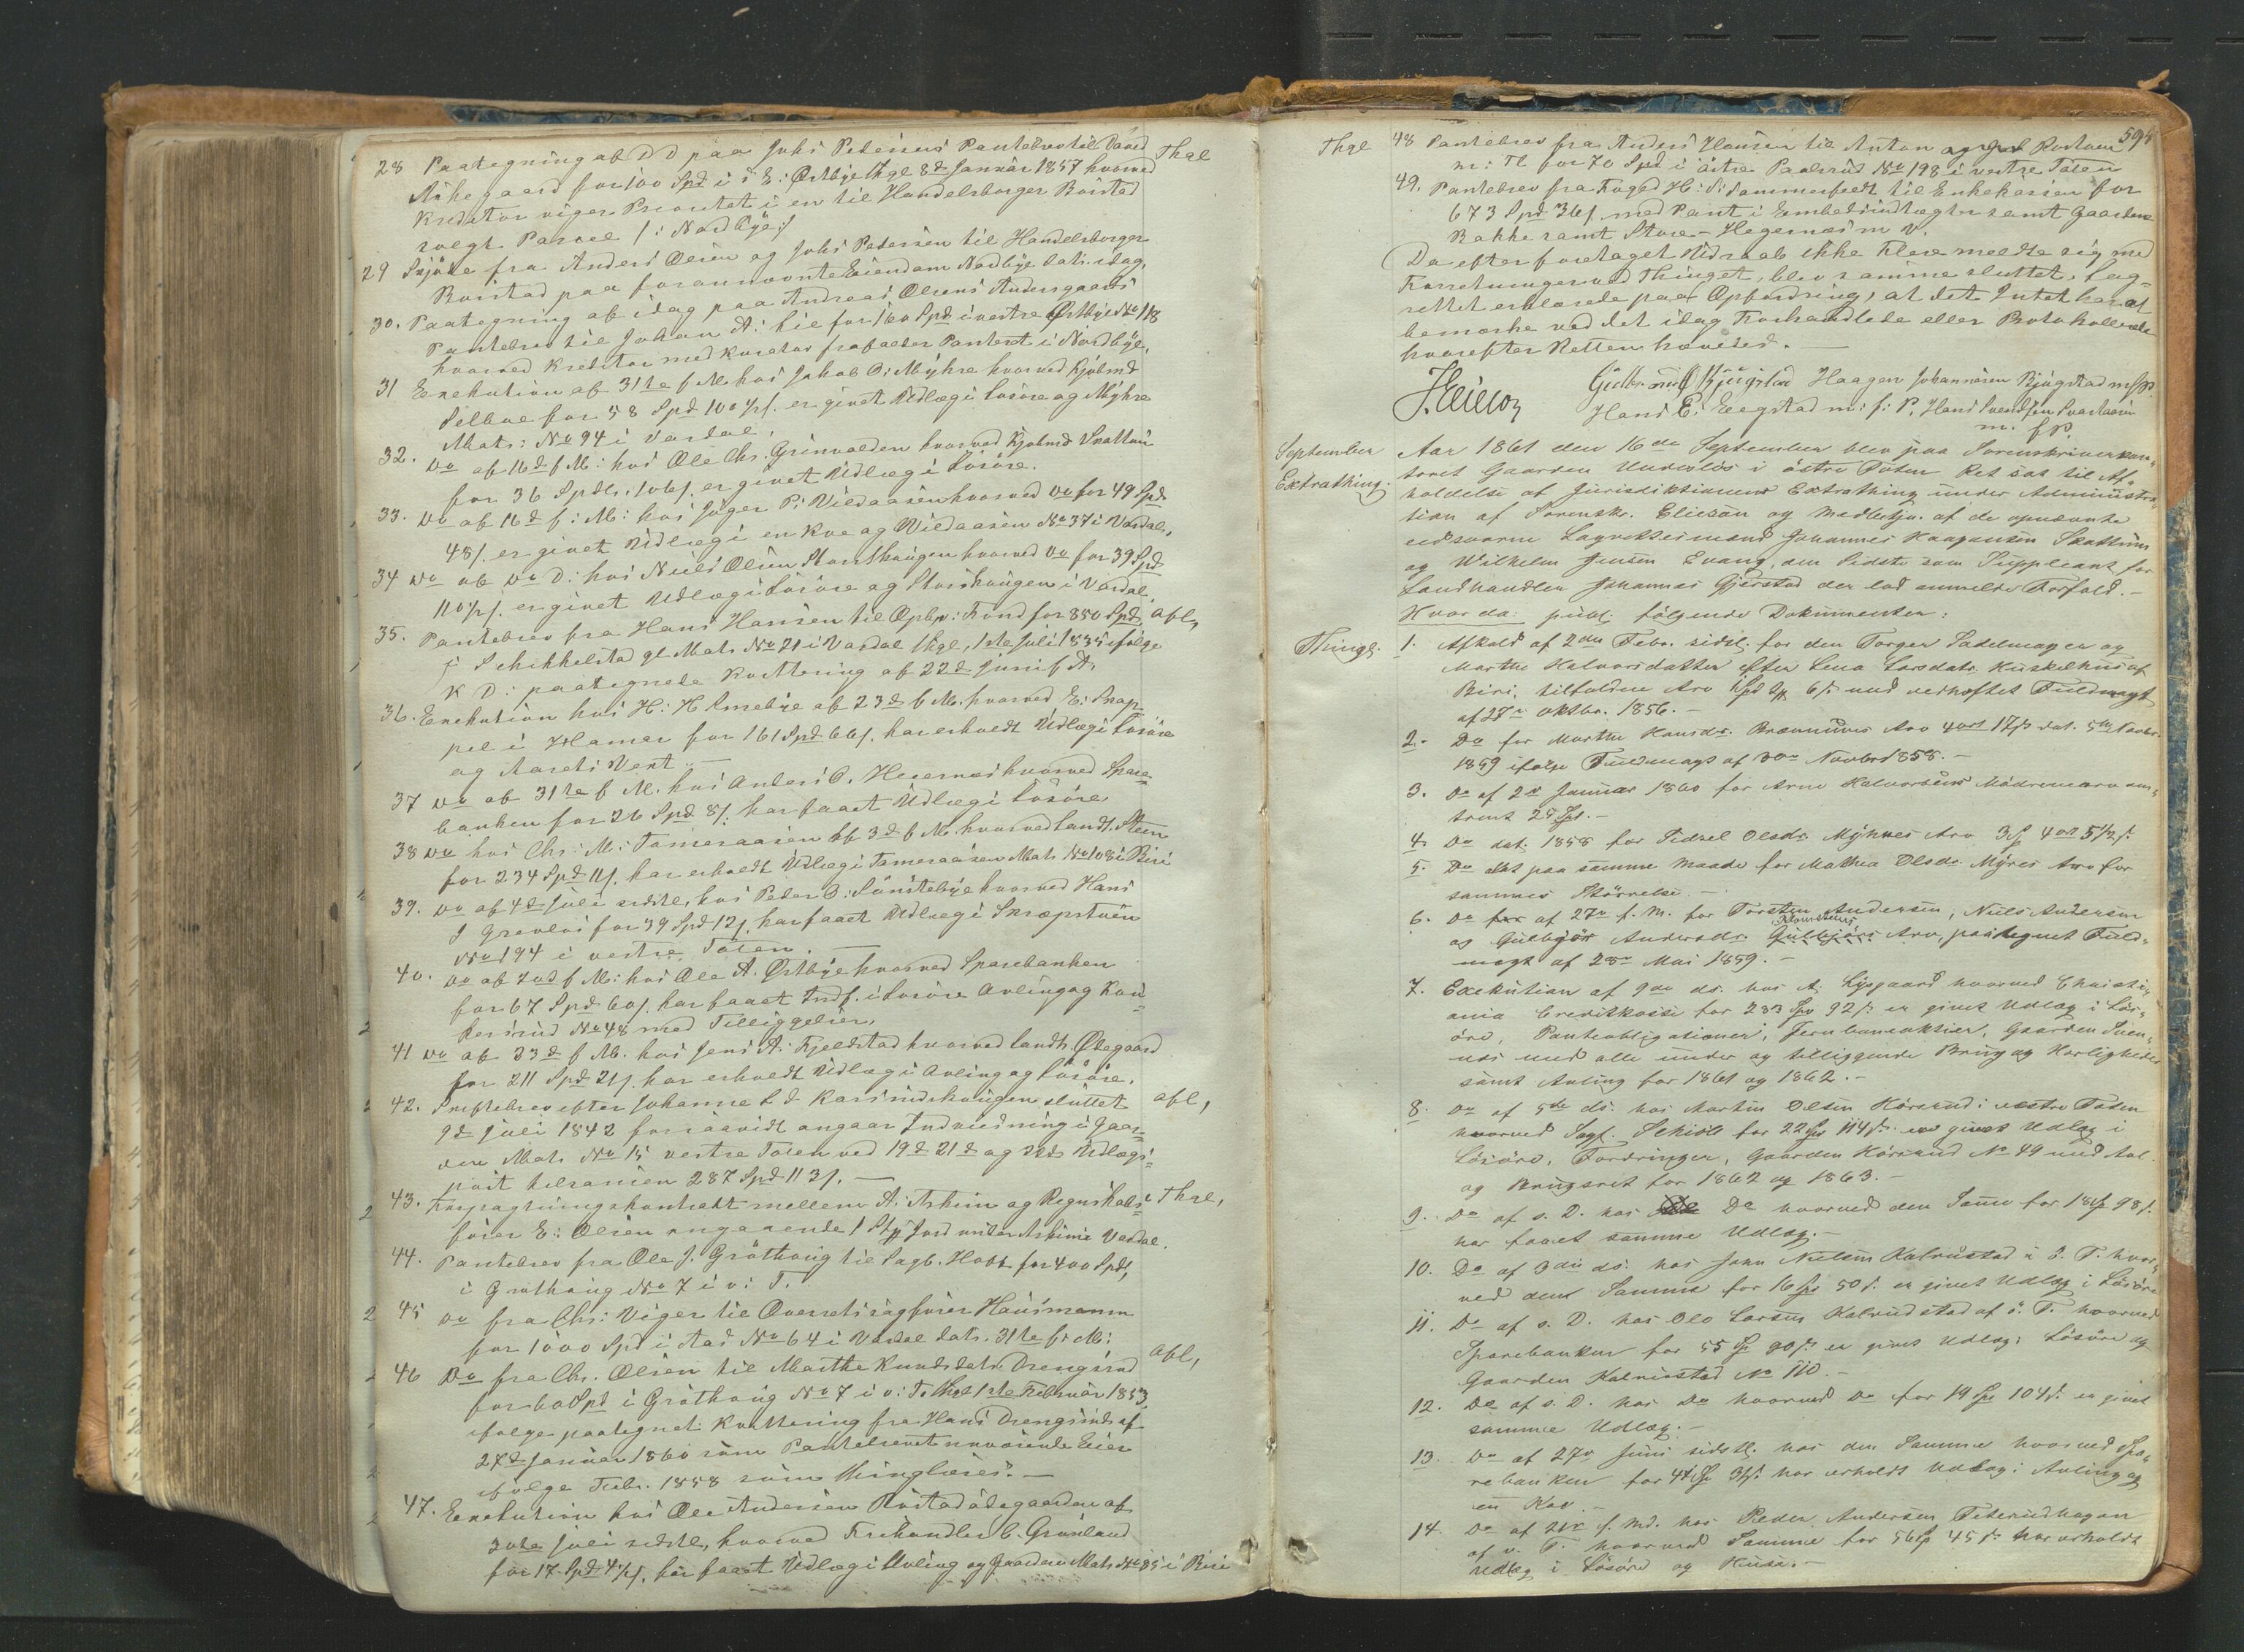 28 Paategning af D D paa Johs Petersens Pantebrev til David Thgl
Aakegaard for 100 Spd i ö E: Østbye thgl 8d Januar 1857 hvorved
Kreditor viger Prioritet i en til Handelsborger Borstad
solgt Parcel /: Nordbye :/
29 Skjöde fra Anders Olsen og Johs Petersen til Handelsborger
Borstad paa forannevnte Eiendom Nordbye dat. idag.
30. Paategning af idag paa Andreas Olsens Andersgaards
Pantebrev til Johan A: Lie for 160 Spd i vestre Østbye No 118
hvorved Kreditor med Kurator frafalder Panteret i Nordbye,
31 Exekution af 31te f M. hos Jakob O: Myhre hvorved Kjøbmd
Silbue for 58 Spd 100 s/. er givet Udlæg i Losöre og Myhre
Mats: No 94 i Vardal.
32. Do af 16d f M: hos Ole Chr. Grönvolden hvorved Kjøbmd Skattum
for 36 Spdlr. 106 s/. er givet Udlæg i Losöre.
33. Do af 16d f: M: hos Jöger P: Vildaasen hvorved Do for 49 Spd
48 s/. er givet Udlæg i en Koe og Vildaasen No 37 i Vardal,
34 Do af Do D: hos Niels Olsen Storshaugen hvorved Do for 39 Spd
110 1/2 s/. er givet Udlæg i Losöre og Storshaugen i Vardal.
35. Pantebrev fra Hans Hansen til Oplys: Fond for 850 Spd, afl,
i Schikkelstad gl Mats No 21 i Vardal thgl. 1ste Juli 1835 ifölge
K D: paategnede Kvittering af 22d Juni f A.
36. Exekution hos H: H Amsbye af 23d f M. hvorved E: Snap-
pel i Hamar for 161 Spd 66 s/. har erholdt Udlæg i Losöre
og Aarets Vext. —
37 Do af 31te f M. hos Anders O. Hegernæs hvorved Spare-
banken for 26 Spd 8 s/. har faaet Udlæg i Losöre
38 Do hos Chr: M: Tømeraasen af 3d f M. hvorved Landh. Steen
for 234 Spd 11 s/. har erholdt Udlæg i Tømeraasen Mats No 108 i Biri
39. Do af 4d Juli sidstl, hos Peder O: Sönstebye hvorved Hans
J Gravlos for 39 Spd 12 s/. har faaet Udlæg i Skræpstuen
No 194 i vestre Toten. —
40. Do af 2nd f M: hos Ole A. Østbye hvorved Sparebanken
for 67 Spd 60 s/. har faaet Indf. i Losöre Avling og Kon-
kersrud No 48 med Tilliggelser.
41 Do af 23d f M. hos Jens A: Fjeldstad hvorved Landh. Ødegaard
for 211 Spd 21 s/. har erholdt Udlæg i Avling og Losöre.
42. Skiftebrev efter Johanne L D Karsrudshaugen sluttet afl,
9d Juli 1842 forsaavidt angaar Indviedning i Gaar-
den Mats No 15 vestre Toten ved 19d 21d og 22d Udlægs-
post tilsammen 287 Spd 113 s/. —
43. Forpagtningskontrakt mellem A: Askim og Regnskabs- Thgl,
förer E: Olsen angaaende 1 Stk Jord under Askim i Vardal.
44. Pantebrev fra Ole J. Gröthaug til Sagf. Hoff for 400 Spd,
i Gröthaug No 7 i v: T.
45 Do fra Chr: Viger til Overretssagförer Hausmann
for 1000 Spd i Aas No 64 i Vardal dat. 31te f: M:
46 Do fra Chr. Olsen til Marthe Knudsdatr Drengsrud afl,
for 60 Spd i Gröthaug No 7 i v: T. thgl 1ste Februar 1853
ifölge paategnet Kvittering fra Hans Drengsrud af
27d Januar 1860 som Pantebrevets nuværende Eier
ifölge Febr. 1858 som thinglæses. —
47. Exekution hos Ole Andersen Röstadödegaarden af
20de Juli sidstl, hvorved Frihandler C. Grönland
for 17 Spd 4 1/2 s/. har faaet Udlæg i Avling og Gaarden Mats No 85 i Biri
594
Thgl 48 Pantebrev fra Anders Hansen til Anton Rostuen
m: Fl for 70 Spd i östre Paalsrud No 198 i vestre Toten
49. Pantebrev fra Foged H: S: Sommerfeldt til Enkekassen for
673 Spd 36 s/. med Pant i Embedsindtægter samt Gaardene
Bakke samt Store-Hegernæs m V.
Da efter foretaget Udraab ikke Flere meldte sig med
Forretninger ved Thinget, blev samme sluttet. Lag-
rettet erklærede paa Opfordring, at det Intet havde at
bemærke ved det idag Forhandlede eller Protokollerede
hvorefter Retten hævedes. —
Gudbrand Bjugstad Haagen Johannesen Bjugstad m/P.
Hans E: Eegstad m: f: P. Hans Svendsen Svartaasen
m. f P.
September Aar 1861 den 16de September blev paa Sorenskriverkon-
Extrathing. toret Gaarden Underlös i östre Toten Ret sat til Af-
holdelse af Jurisdiktionens Extrathing under Administra-
tion af Sorenskr. Eliesön og Medbetjen. af de opnævnte
edsvorne Lagrettesmænd Johannes Haagensen Skattum
og Wilhelm Jensen Evang, den Sidste som Suppleant for
Landhandler Johannes Gjerstad der lod anmelde Forfald. —
Hvor da: publ. fölgende Dokumenter:
Thingl. 1. Afkald af 2den Febr. sidstl. for den Torger Sadelmager og
Marthe Halvorsdatter efter Lena Larsdatr. Kuskelhus af
Biri, tilfalden Arv 1 Spd 2 # 6 s. med vedhæftet Fuldmagt
af 27de Oktbr. 1856. —
2. Do for Marthe Hansdr. Brænnernes Arv 4 ort 17 s dat. 5te Novbr.
1859 ifölge Fuldmagt af 30te Novbr 1858. —
3. Do af 2de Januar 1860 for Arne Halvorsens Mödrenearv om-
trent 25 Spd. —
4. Do dat. 1858 for Sidsel Olsdr. Myhres Arv 3 Sp 4 ort 5 1/2 s.
5. Do dat paa samme Maade for Mathea Olsdr. Myres Arv for
sammes Störrelse. —
6. Do for af 27de f. M. for Torsten Andersen, Niels Andersen
og Gulbjör Andersdr. Gulbjörs Arv, paategnet Fuld-
magt af 28de Mai 1859. —
7. Exekution af 9de ds. hos A. Lysgaard hvorved Christi-
ania Creditkasse for 283 Spd 92 s. er givet Udlæg i Lös-
öre, Panteobligationer, Jernbaneaktier, Gaarden Sven-
næs med alle under og tilliggende Brug og Herligheder
samt Avling for 1861 og 1862. —
8. Do af 5te ds. hos Martin Olsen Hörsrud i vestre Toten
hvorved Sagf. Schiöll for 22 Spd 114 s. er givet Udlæg i
Lösöre, Fordringer, Gaarden Hörsrud No 49 med Avl.
og Brugsret for 1862 og 1863. —
9. Do af s. D. hos Do hvorved den Samme for 18 Sp 98 s.
har faaet samme Udlæg. —
10. Do af 3die ds. hos John Nielsen Kalrustad i ö. T. hvor-
ved den Samme for 16 Spd 50 s. er givet Udlæg i Lösöre
11. Do af s. D. hos Ole Larsen Kalrudstad af ö. T. hvorved
Sparebanken for 55 Sp 90 s. er givet Udlæg i Lösöre og
Gaarden Kalrustad No 110. —
12. Do af s. D. hos Do hvorved Do for 19 Spd 104 s. er givet
samme Udlæg. —
13. Do af 27de Juni sidstl. hos den Samme hvorved Spa-
rebanken for 41 Sp 31 s. har erholdt Udlæg i Avling og
en Koe. —
14. Do af 21de f. Md. hos Peder Andersen Feterudhagen
af v. T. hvorved Samme for 56 Sp 45 s. har erholdt
Udlæg i Lösöre og Huse. —